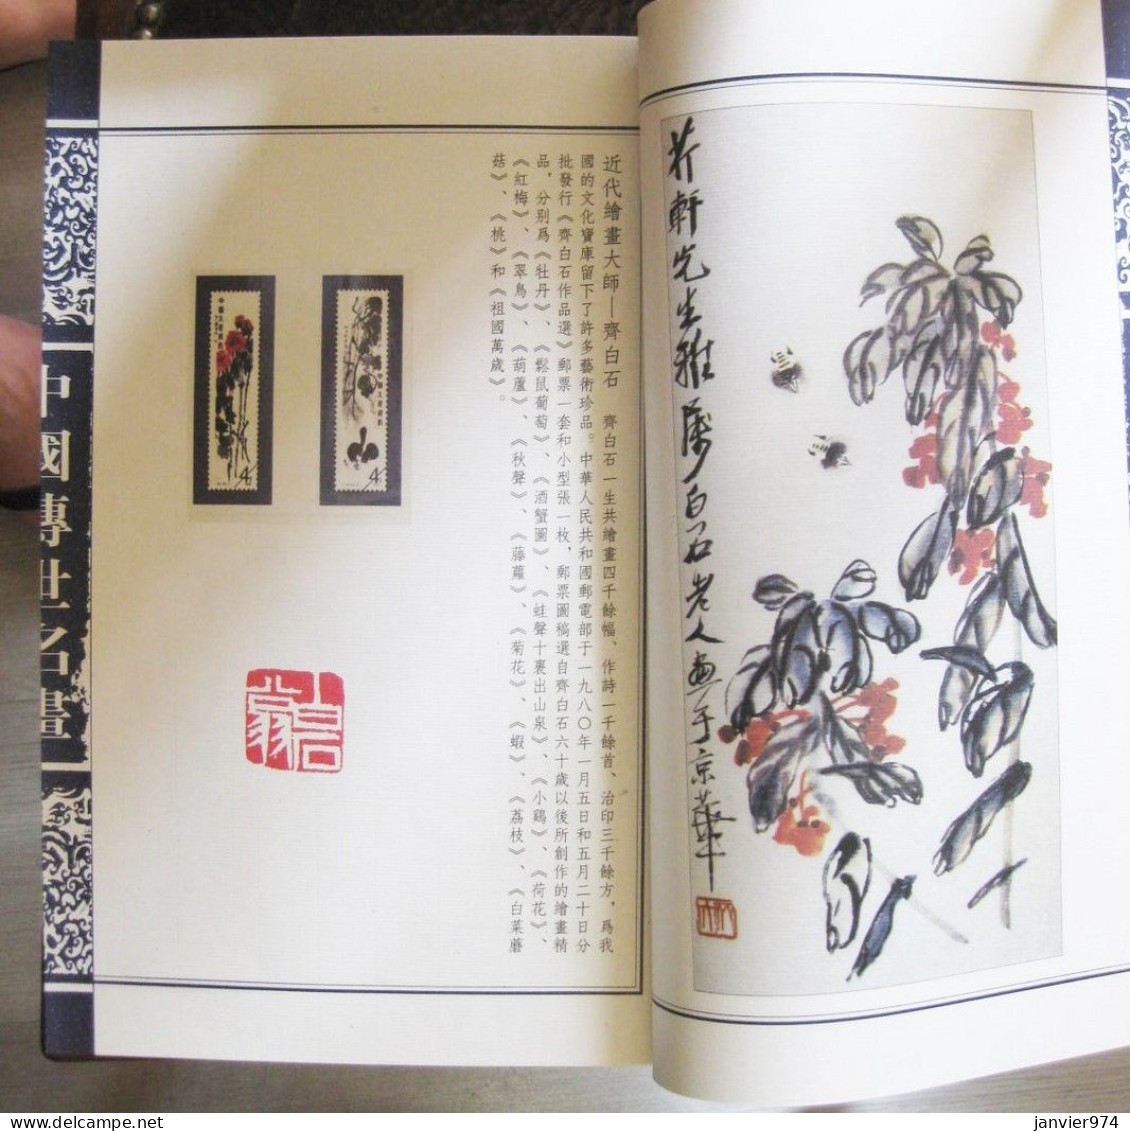 中國傳世名畫
近代繪畫大師—齊白石 齊白石一生共繪畫四千餘幅、作詩一千餘首、治印三千餘方，爲我
國的文化寶庫留下了許多藝術珍品。中華人民共和國郵電部于一九八〇年一月五日和五月二十日分
批發行《齊白石作品選》郵票一套和小型張一枚，郵票圖稿選自齊白石六十歲以後所創作的繪畫精
品，分别爲《牡丹》、《鬆鼠葡萄》、《酒蟹圖》、《蛙聲十裏出山泉》、《小鷄》、《荷花》、
《紅梅》、《翠鳥》、《葫蘆》、《秋聲》、《藤蘿》、《菊花》、《蝦》、《荔枝》、《白菜蘑
菇》、《桃》和《祖國萬歲》。
4
4
芥軒先生雅屬白石老人畫于京華
janvier974